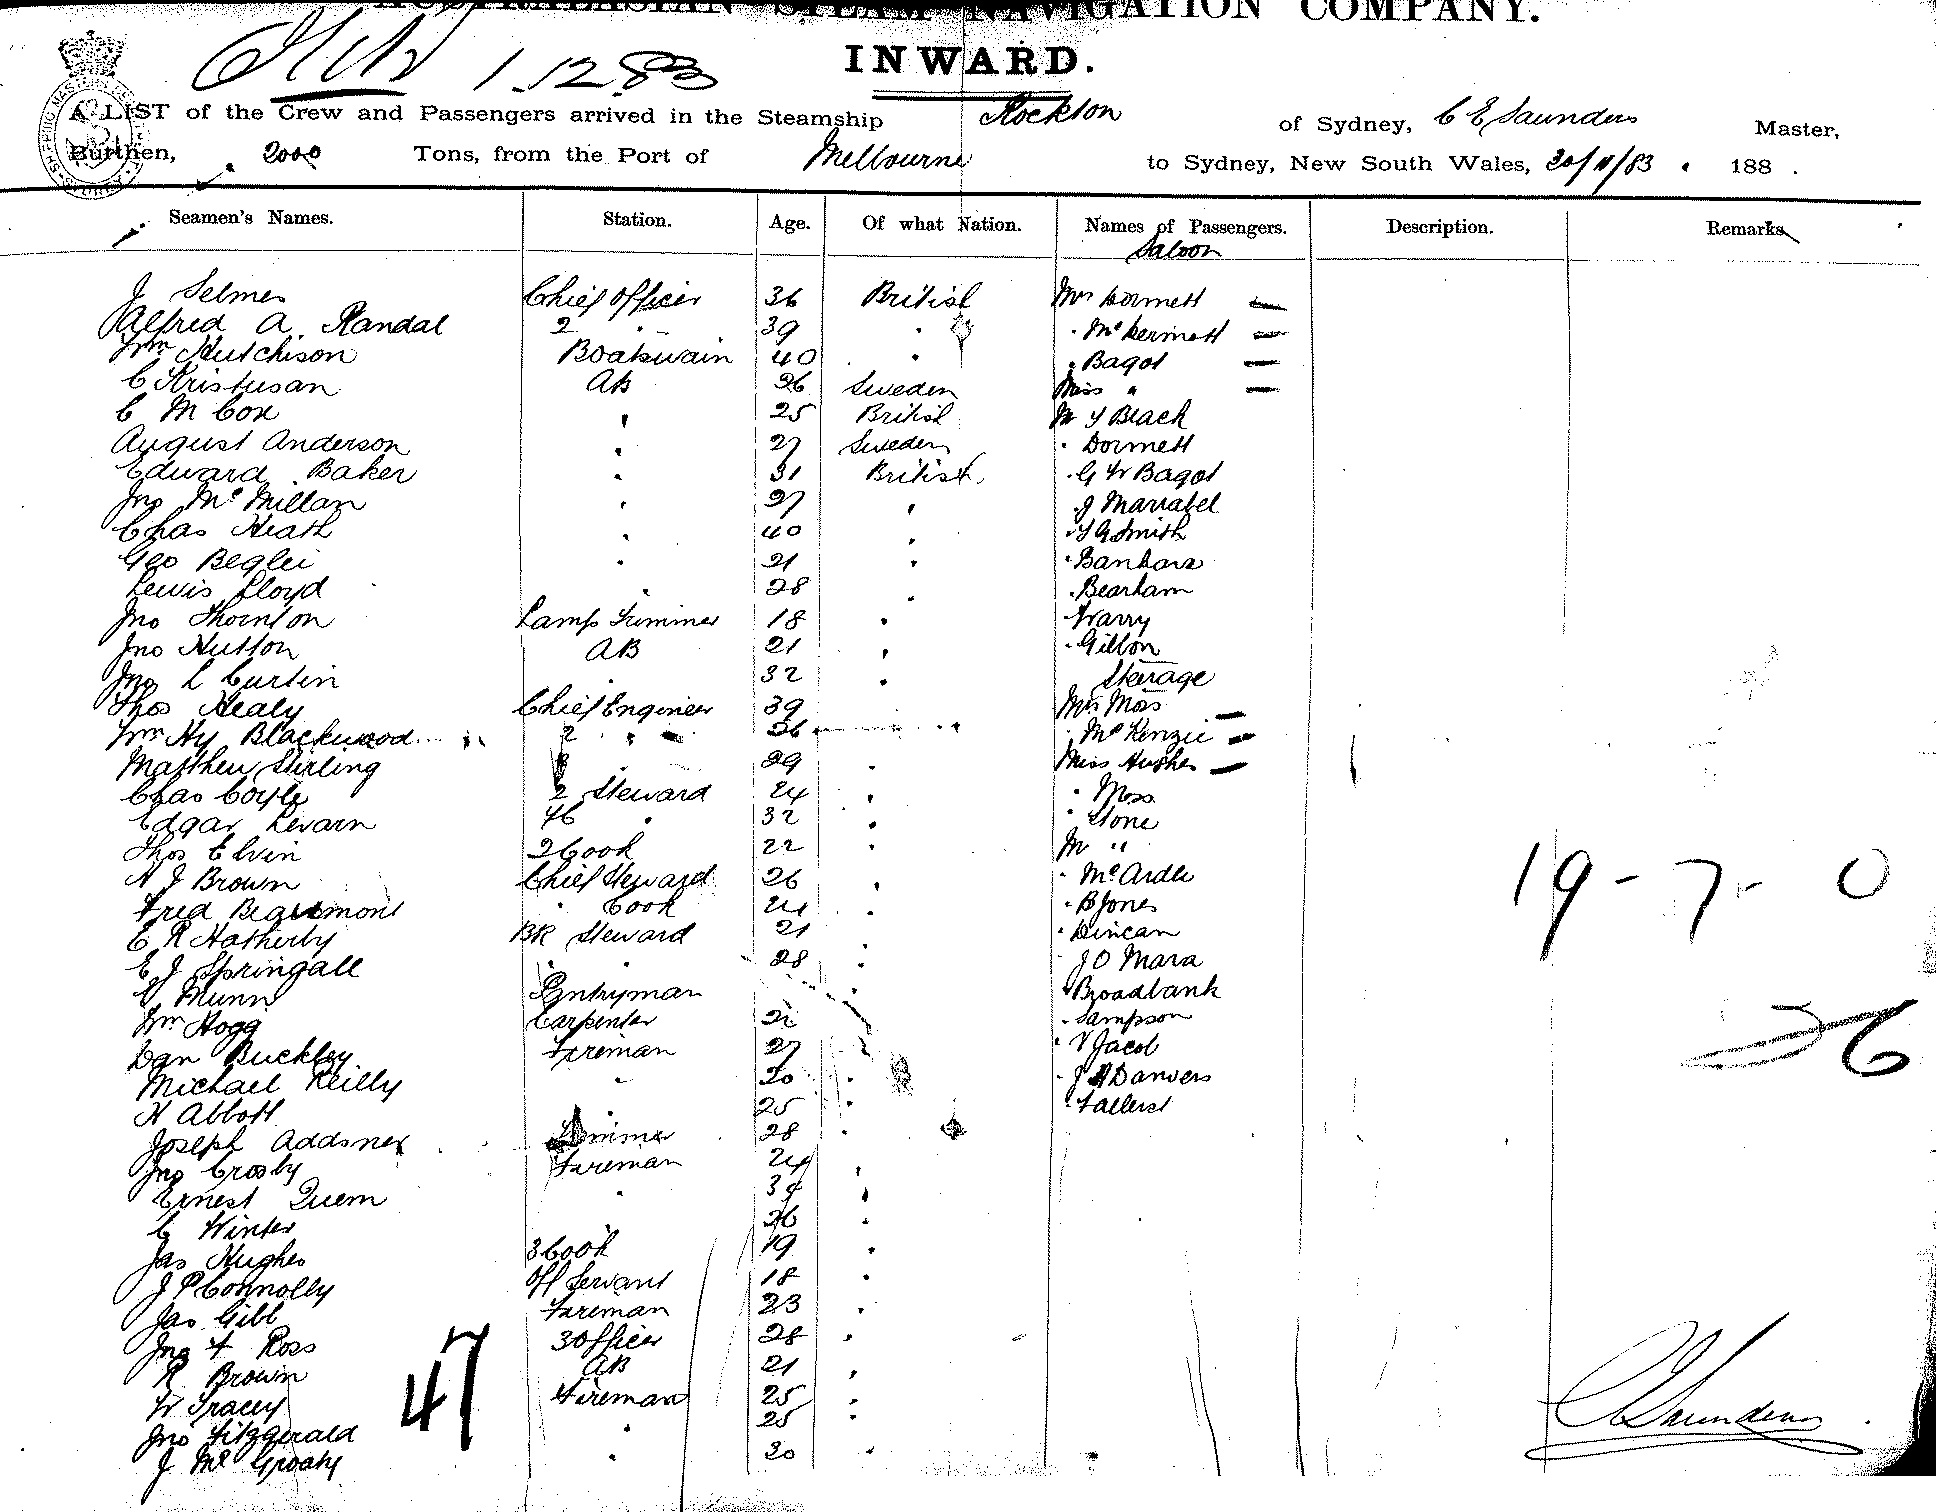 AUSTRALASIAN STEAM NAVIGATION COMPANY.
INWARD.
1.12.83
A LIST of the Crew and Passengers arrived in the Steamship Rockton of Sydney, C E Saunders Master,
Burthen, 2000 Tons, from the Port of Melbourne to Sydney, New South Wales, 30/11/83 188 .
Seamen's Names. Station. Age. Of what Nation. Names of Passengers. Description. Remarks
Saloon
J Selmes Chief Officer 36 British Mrs Dormett —
Alfred A. Randal 2 " 39 " " McDermott —
Wm Hutchison Boatswain 40 " " Bagot —
C Kristusan AB 26 Sweden Miss " —
C M Cox " 25 British Mr Y Black
August Anderson " 27 Sweden " Dormett
Edward Baker " 31 British " G W Bagot
Jno McMillan " 27 " " J Marrabel
Chas Heath " 40 " " Smith
Geo Beglei " 21 " "
Lewis Lloyd " 28 " " Bearham
Jno Thornton Lamp Trimmer 18 " " Warry
Jno Hutton AB 21 " " Gillon
Jno L Curtin " 32 " Steerage
Thos Healy Chief Engineer 39 Mrs Moss —
Wm Hy Blackwood 2 " " 26 " McKenzie —
Matthew Stirling 3 " 29 " Miss Hughes —
Chas Coyle 2 Steward 24 " " Moss
Edgar Levarn " 32 " " Stone
Thos Elvin 2 Cook 22 " Mr "
H J Brown Chief Steward 26 " " McArdle
Fred Beaumont " Cook 24 " " B Jones
E R Hatherby BK Steward 21 " " Duncan
E J Springall " " 28 " " J O Mara
C Munn Pantryman " " Broadbank
Wm Hogg Carpenter " Sampson
Dan Buckley Fireman 27 " V Jacob
Michael Reilly " 20 " " J H Danvers
H Abbott " 25 " "
Joseph Trimmer 28 "
Jno Crosby Fireman 24 "
Ernest Quem " "
C Winter 26 "
Jas Hughes 3 Cook 19 "
J P Connolly Off Servant 18 "
Jas Gibb Fireman 23 "
Jno F Ross 3 Officer 28 "
R Brown AB 21 "
W Tracey Fireman 25 "
Jno Fitzgerald " 25 "
J McGroaty " 30 "
47
19 - 7 - 0
26
C E Saunders